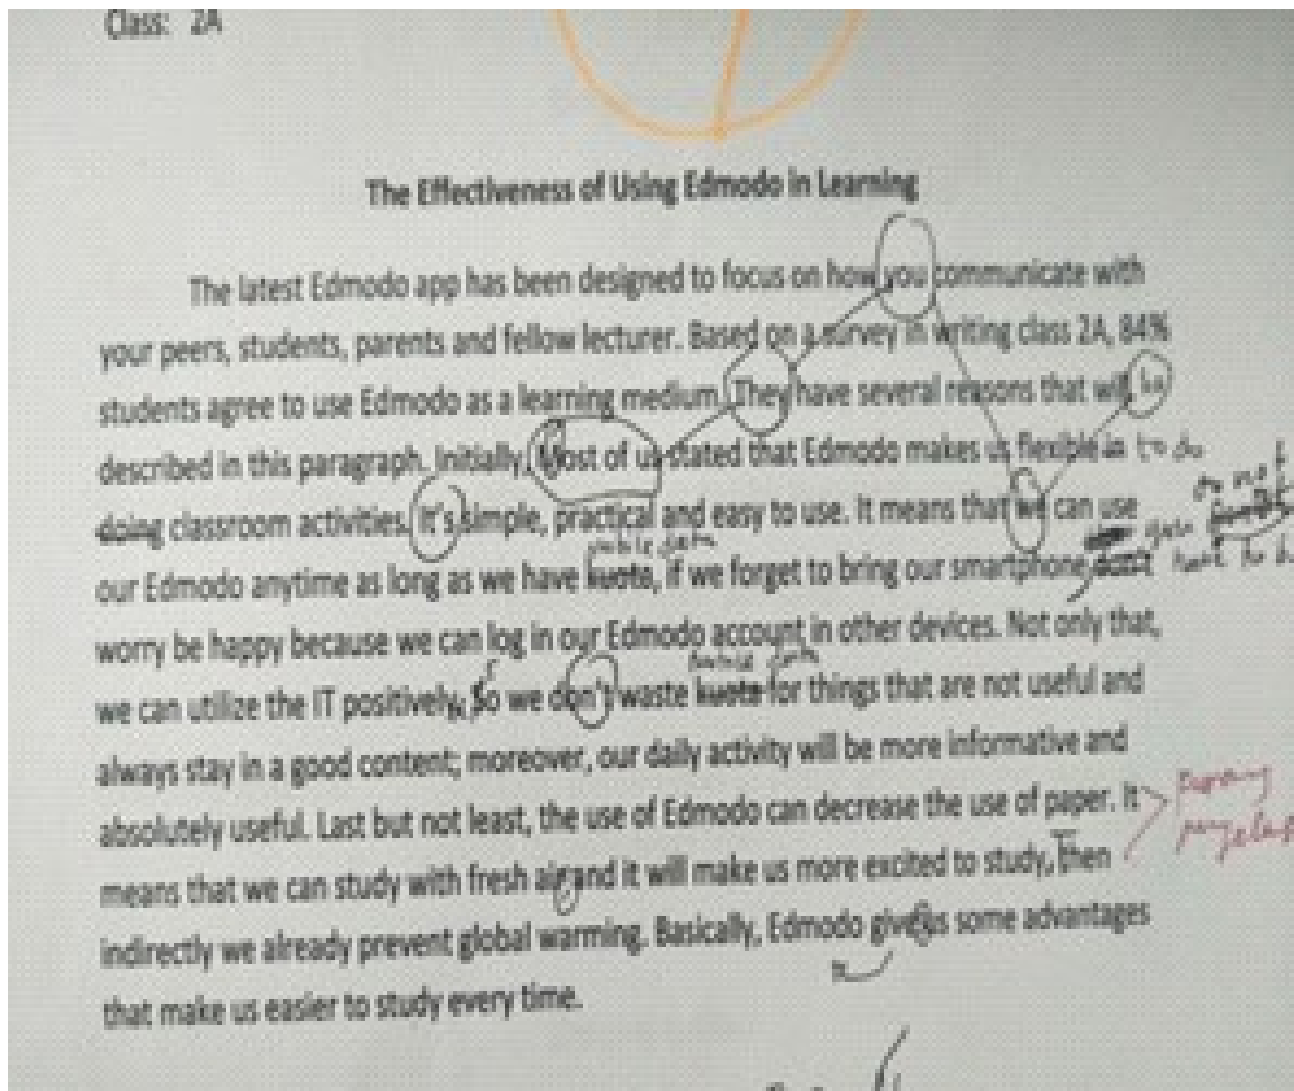 Class: 2A
The Effectiveness of Using Edmodo in Learning
The latest Edmodo app has been designed to focus on how you communicate with
your peers, students, parents and fellow lecturer. Based on a survey in writing class 2A, 84%
students agree to use Edmodo as a learning medium. They have several reasons that will be
described in this paragraph. Initially, Most of us stated that Edmodo makes us flexible in to do
doing classroom activities. It's simple, practical and easy to use. It means that we can use
our Edmodo anytime as long as we have kuota, if we forget to bring our smartphone don't
worry be happy because we can log in our Edmodo account in other devices. Not only that,
we can utilize the IT positively. So we don't waste kuota for things that are not useful and
always stay in a good content; moreover, our daily activity will be more informative and
absolutely useful. Last but not least, the use of Edmodo can decrease the use of paper. It
means that we can study with fresh air and it will make us more excited to study, Then
indirectly we already prevent global warming. Basically, Edmodo give us some advantages
that make us easier to study every time.